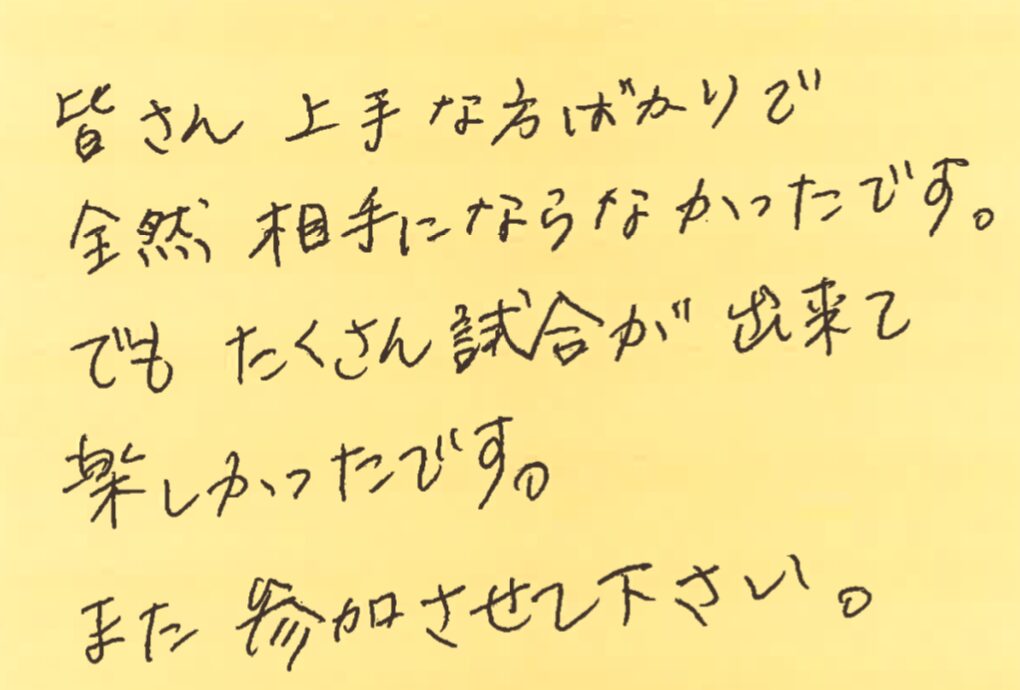 皆さん 上手な方ばかりで
全然 相手にならなかったです。
でも たくさん試合が 出来て
楽しかったです。
また 参加させて下さい。